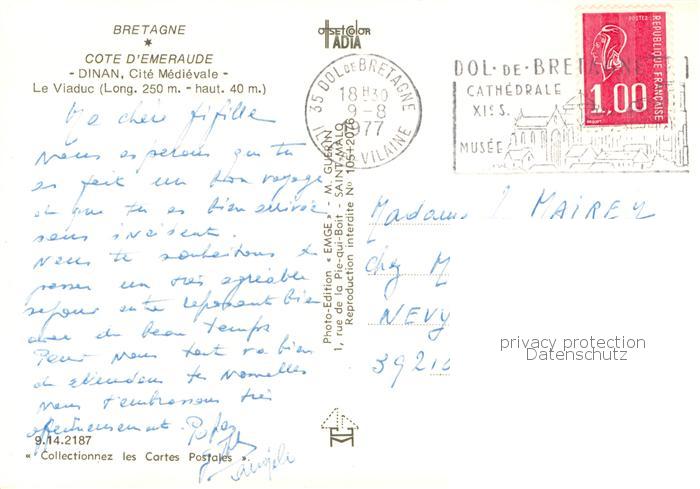 BRETAGNE
*
COTE D'EMERAUDE
- DINAN, Cité Médiévale -
Le Viaduc (Long. 250 m. - haut. 40 m.)
Ma chère fifille
Nous espérons que tu
as fait un bon voyage
et que tu es bien arrivée
sans incident.
Nous te souhaitons de
passer un très agréable
séjour entre reposant bien
avec du beau temps
Pour nous tout va bien
Nous t'embrassons très
affectueusement. Papa
9.14.2187
« Collectionnez les Cartes Postales ».
offset color
IADIA
Photo-Edition « EMGE » - M. GUERIN
1, rue de la Pie-qui-Boit - SAINT-MALO
Reproduction interdite No 105+2076
35 DOL DE BRETAGNE
18 H30
9-8
1977
ILLE VILAINE
DOL-DE-BRETAGNE
CATHÉDRALE
XIII S.
MUSÉE
POSTES
REPUBLIQUE FRANÇAISE
1,00
Madame J MAIREY
chez M
NEVY
39210
privacy protection
Datenschutz